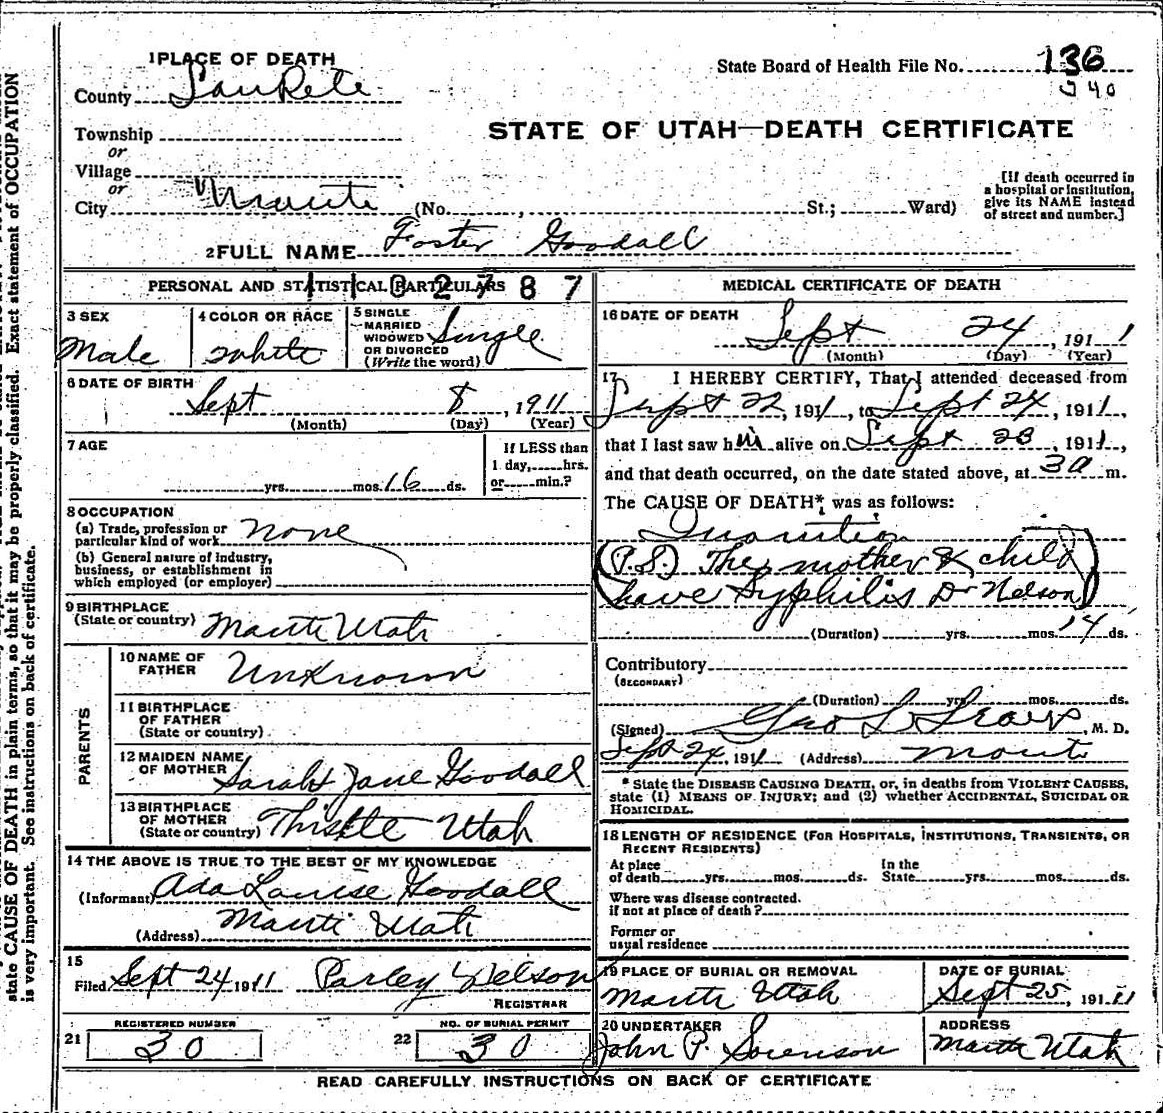 1 PLACE OF DEATH
State Board of Health File No. 136
County SanPete
340
Township
STATE OF UTAH—DEATH CERTIFICATE
or
Village
or
City Manti (No. , St.; Ward)
[If death occurred in
a hospital or institution,
give its NAME instead
of street and number.]
2 FULL NAME Foster Goodall
1102787
PERSONAL AND STATISTICAL PARTICULARS
3 SEX
Male
4 COLOR OR RACE
White
5 SINGLE
MARRIED
WIDOWED
OR DIVORCED
(Write the word)
Single
6 DATE OF BIRTH
Sept 8, 1911
(Month) (Day) (Year)
7 AGE
yrs. mos. 16 ds.
If LESS than
1 day, hrs.
or min.?
8 OCCUPATION
(a) Trade, profession or
particular kind of work None
(b) General nature of industry,
business, or establishment in
which employed (or employer)
9 BIRTHPLACE
(State or country) Manti Utah
PARENTS
10 NAME OF
FATHER Unknown
11 BIRTHPLACE
OF FATHER
(State or country)
12 MAIDEN NAME
OF MOTHER Sarah Jane Goodall
13 BIRTHPLACE
OF MOTHER
(State or country) Thistle Utah
14 THE ABOVE IS TRUE TO THE BEST OF MY KNOWLEDGE
(Informant) Ada Louise Goodall
(Address) Manti Utah
15
Filed Sept 24 1911 Parley Nelson
REGISTRAR
REGISTERED NUMBER
21 30
NO. OF BURIAL PERMIT
22 30
MEDICAL CERTIFICATE OF DEATH
16 DATE OF DEATH
Sept 24, 1911
(Month) (Day) (Year)
17 I HEREBY CERTIFY, That I attended deceased from
Sept 22, 1911, to Sept 24, 1911,
that I last saw him alive on Sept 23, 1911,
and that death occurred, on the date stated above, at 3 a m.
The CAUSE OF DEATH* was as follows:
Inanition
(P.S.) The mother & child
have Syphilis Dr Nelson)
(Duration) yrs. mos. 14 ds.
Contributory
(SECONDARY)
(Duration) yrs. mos. ds.
(Signed) Geo L , M. D.
Sept 24, 1911 (Address) Manti
* State the DISEASE CAUSING DEATH, or, in deaths from VIOLENT CAUSES,
state (1) MEANS OF INJURY; and (2) whether ACCIDENTAL, SUICIDAL OR
HOMICIDAL.
18 LENGTH OF RESIDENCE (FOR HOSPITALS, INSTITUTIONS, TRANSIENTS, OR
RECENT RESIDENTS)
At place
of death yrs. mos. ds.
In the
State yrs. mos. ds.
Where was disease contracted.
if not at place of death?
Former or
usual residence
19 PLACE OF BURIAL OR REMOVAL
Manti Utah
DATE OF BURIAL
Sept 25, 1911
20 UNDERTAKER
John P. Sorenson
ADDRESS
Manti Utah
READ CAREFULLY INSTRUCTIONS ON BACK OF CERTIFICATE
state CAUSE OF DEATH in plain terms, so that it may be properly classified. Exact statement of OCCUPATION
is very important. See instructions on back of certificate.